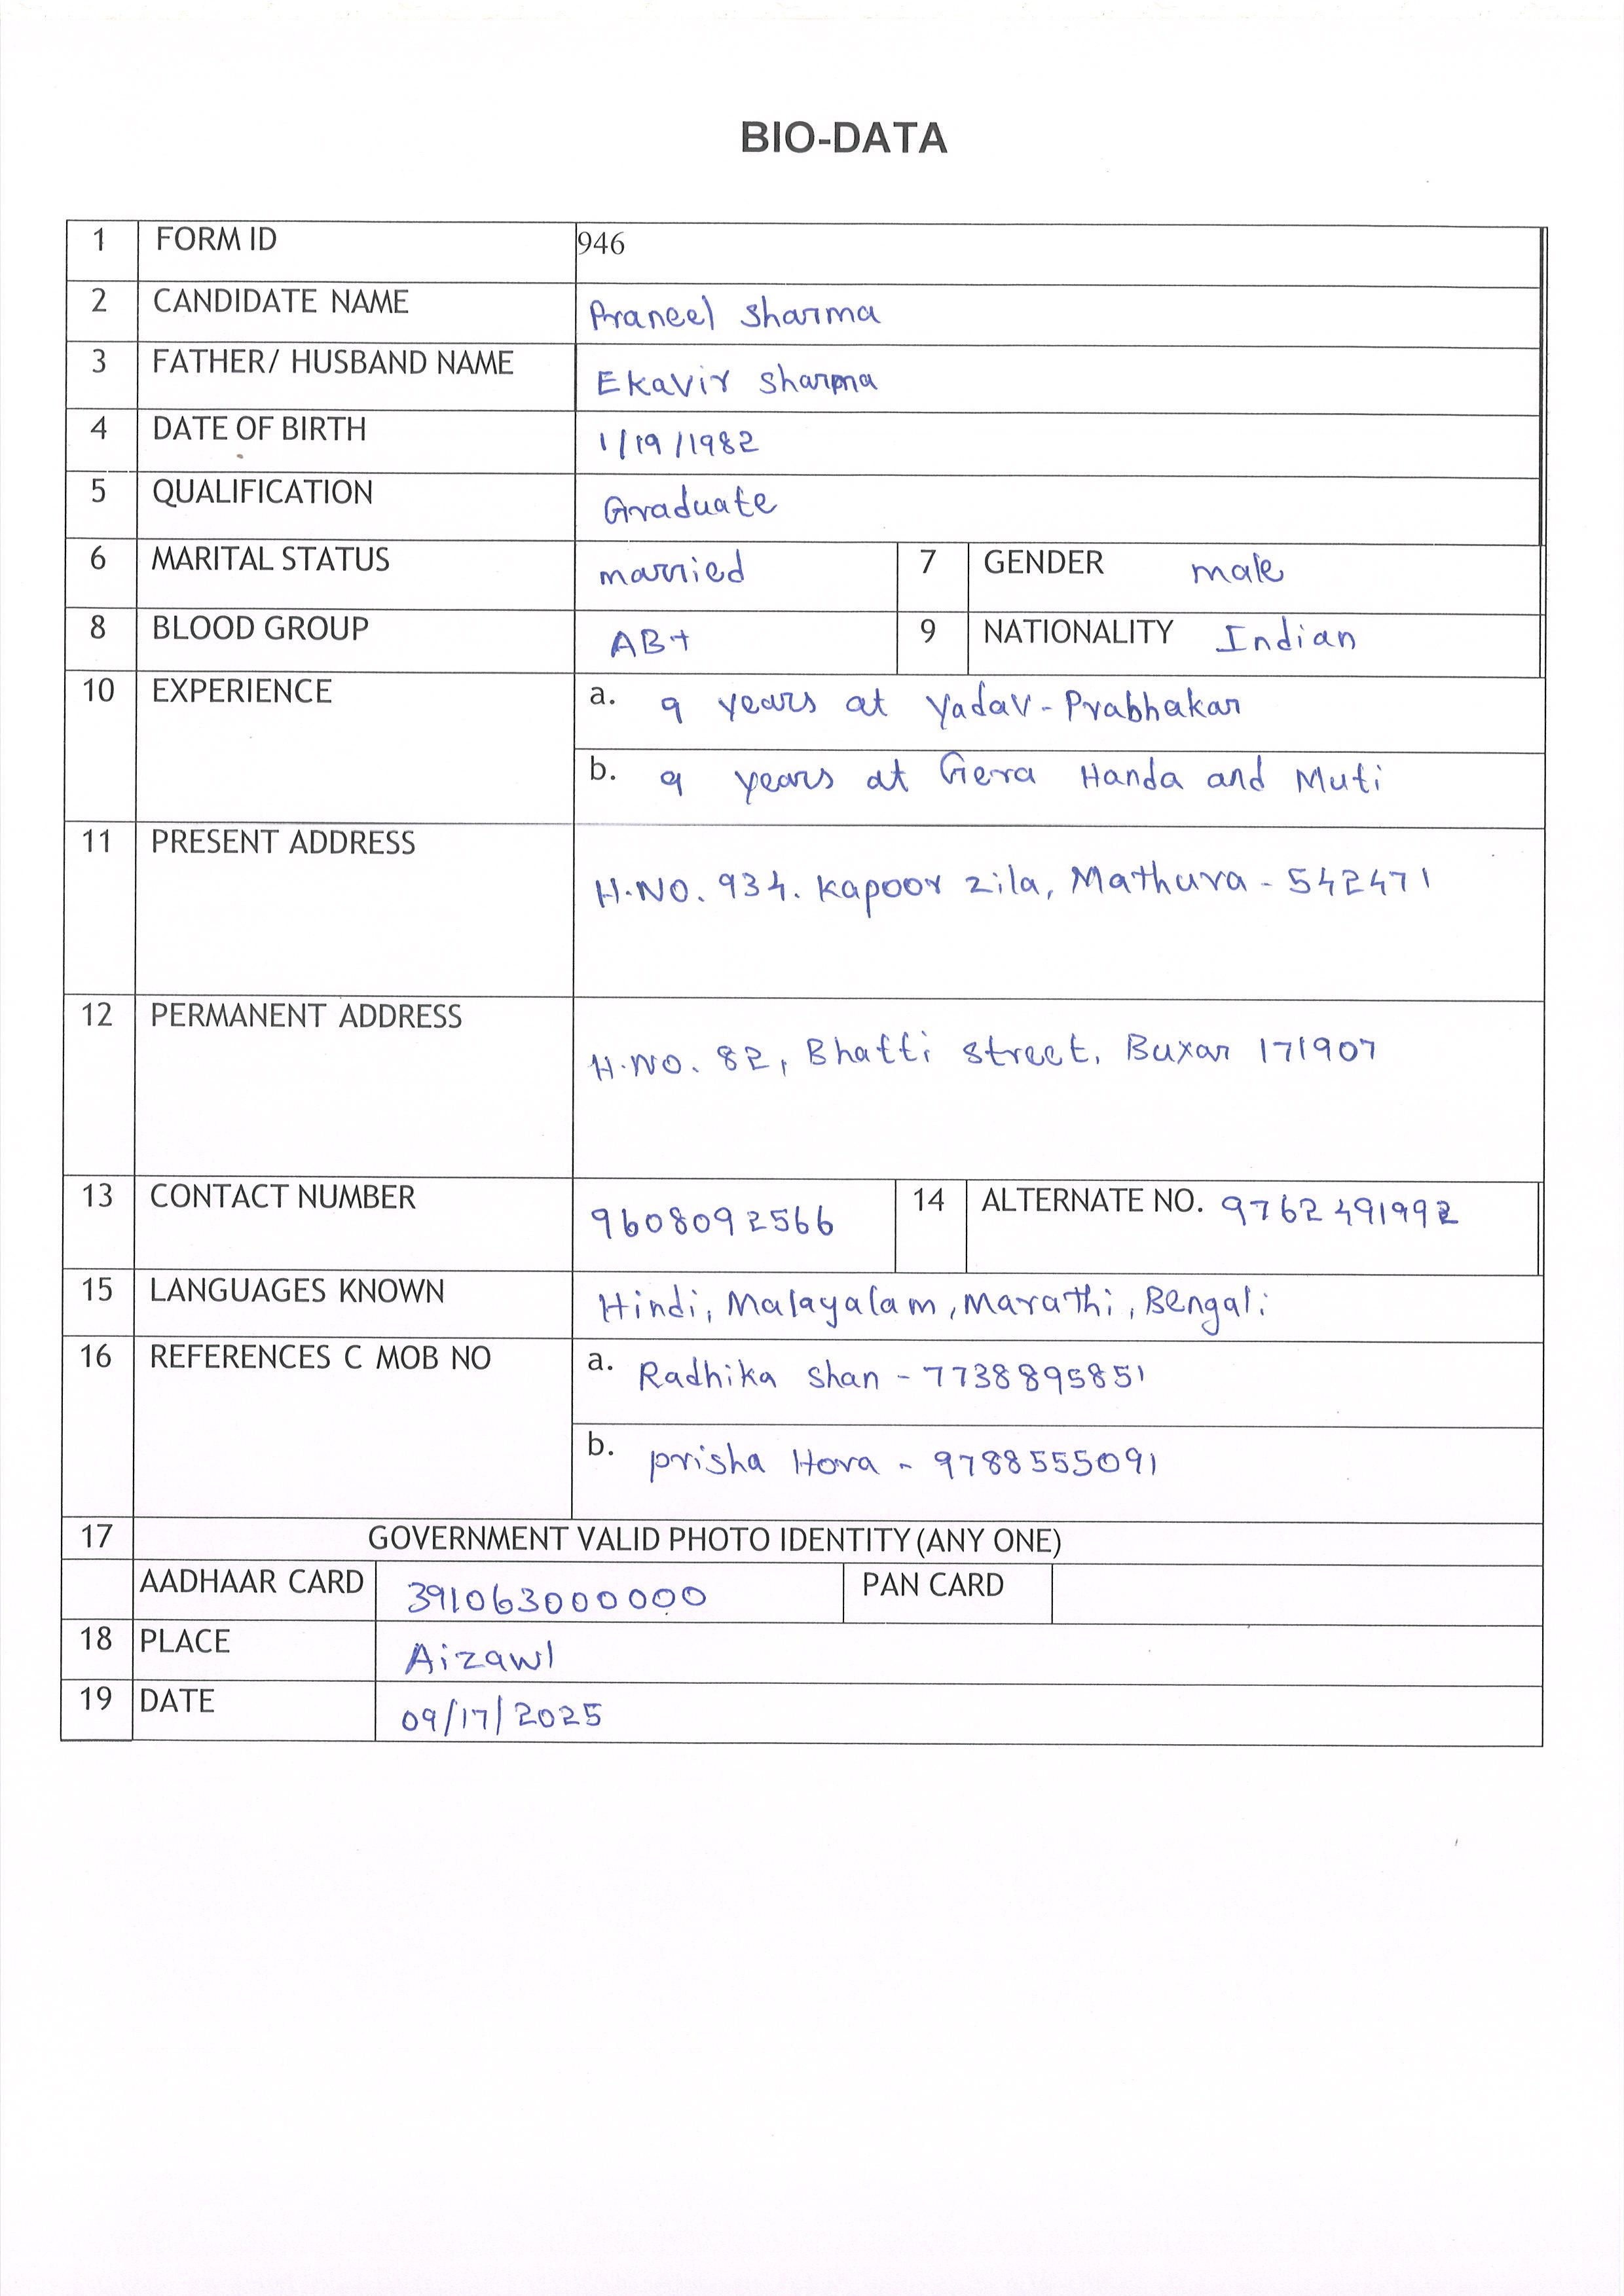 BIO-DATA
1 FORM ID 946
2 CANDIDATE NAME Praneel Sharma
3 FATHER/ HUSBAND NAME Ekavir Sharma
4 DATE OF BIRTH 1/19/1982
5 QUALIFICATION Graduate
6 MARITAL STATUS married 7 GENDER male
8 BLOOD GROUP AB+ 9 NATIONALITY Indian
10 EXPERIENCE a. 9 years at Yadav-Prabhakar
b. 9 years at Gera Handa and Muti
11 PRESENT ADDRESS H.NO. 934. Kapoor zila, Mathura - 542471
12 PERMANENT ADDRESS H.NO. 82, Bhatti street, Buxar 171907
13 CONTACT NUMBER 9608092566 14 ALTERNATE NO. 9762491992
15 LANGUAGES KNOWN Hindi, Malayalam, Marathi, Bengali
16 REFERENCES C MOB NO a. Radhika Shan - 7738895851
b. prisha Hora - 9788555091
17 GOVERNMENT VALID PHOTO IDENTITY (ANY ONE)
AADHAAR CARD 391063000000 PAN CARD
18 PLACE Aizawl
19 DATE 09/17/2025